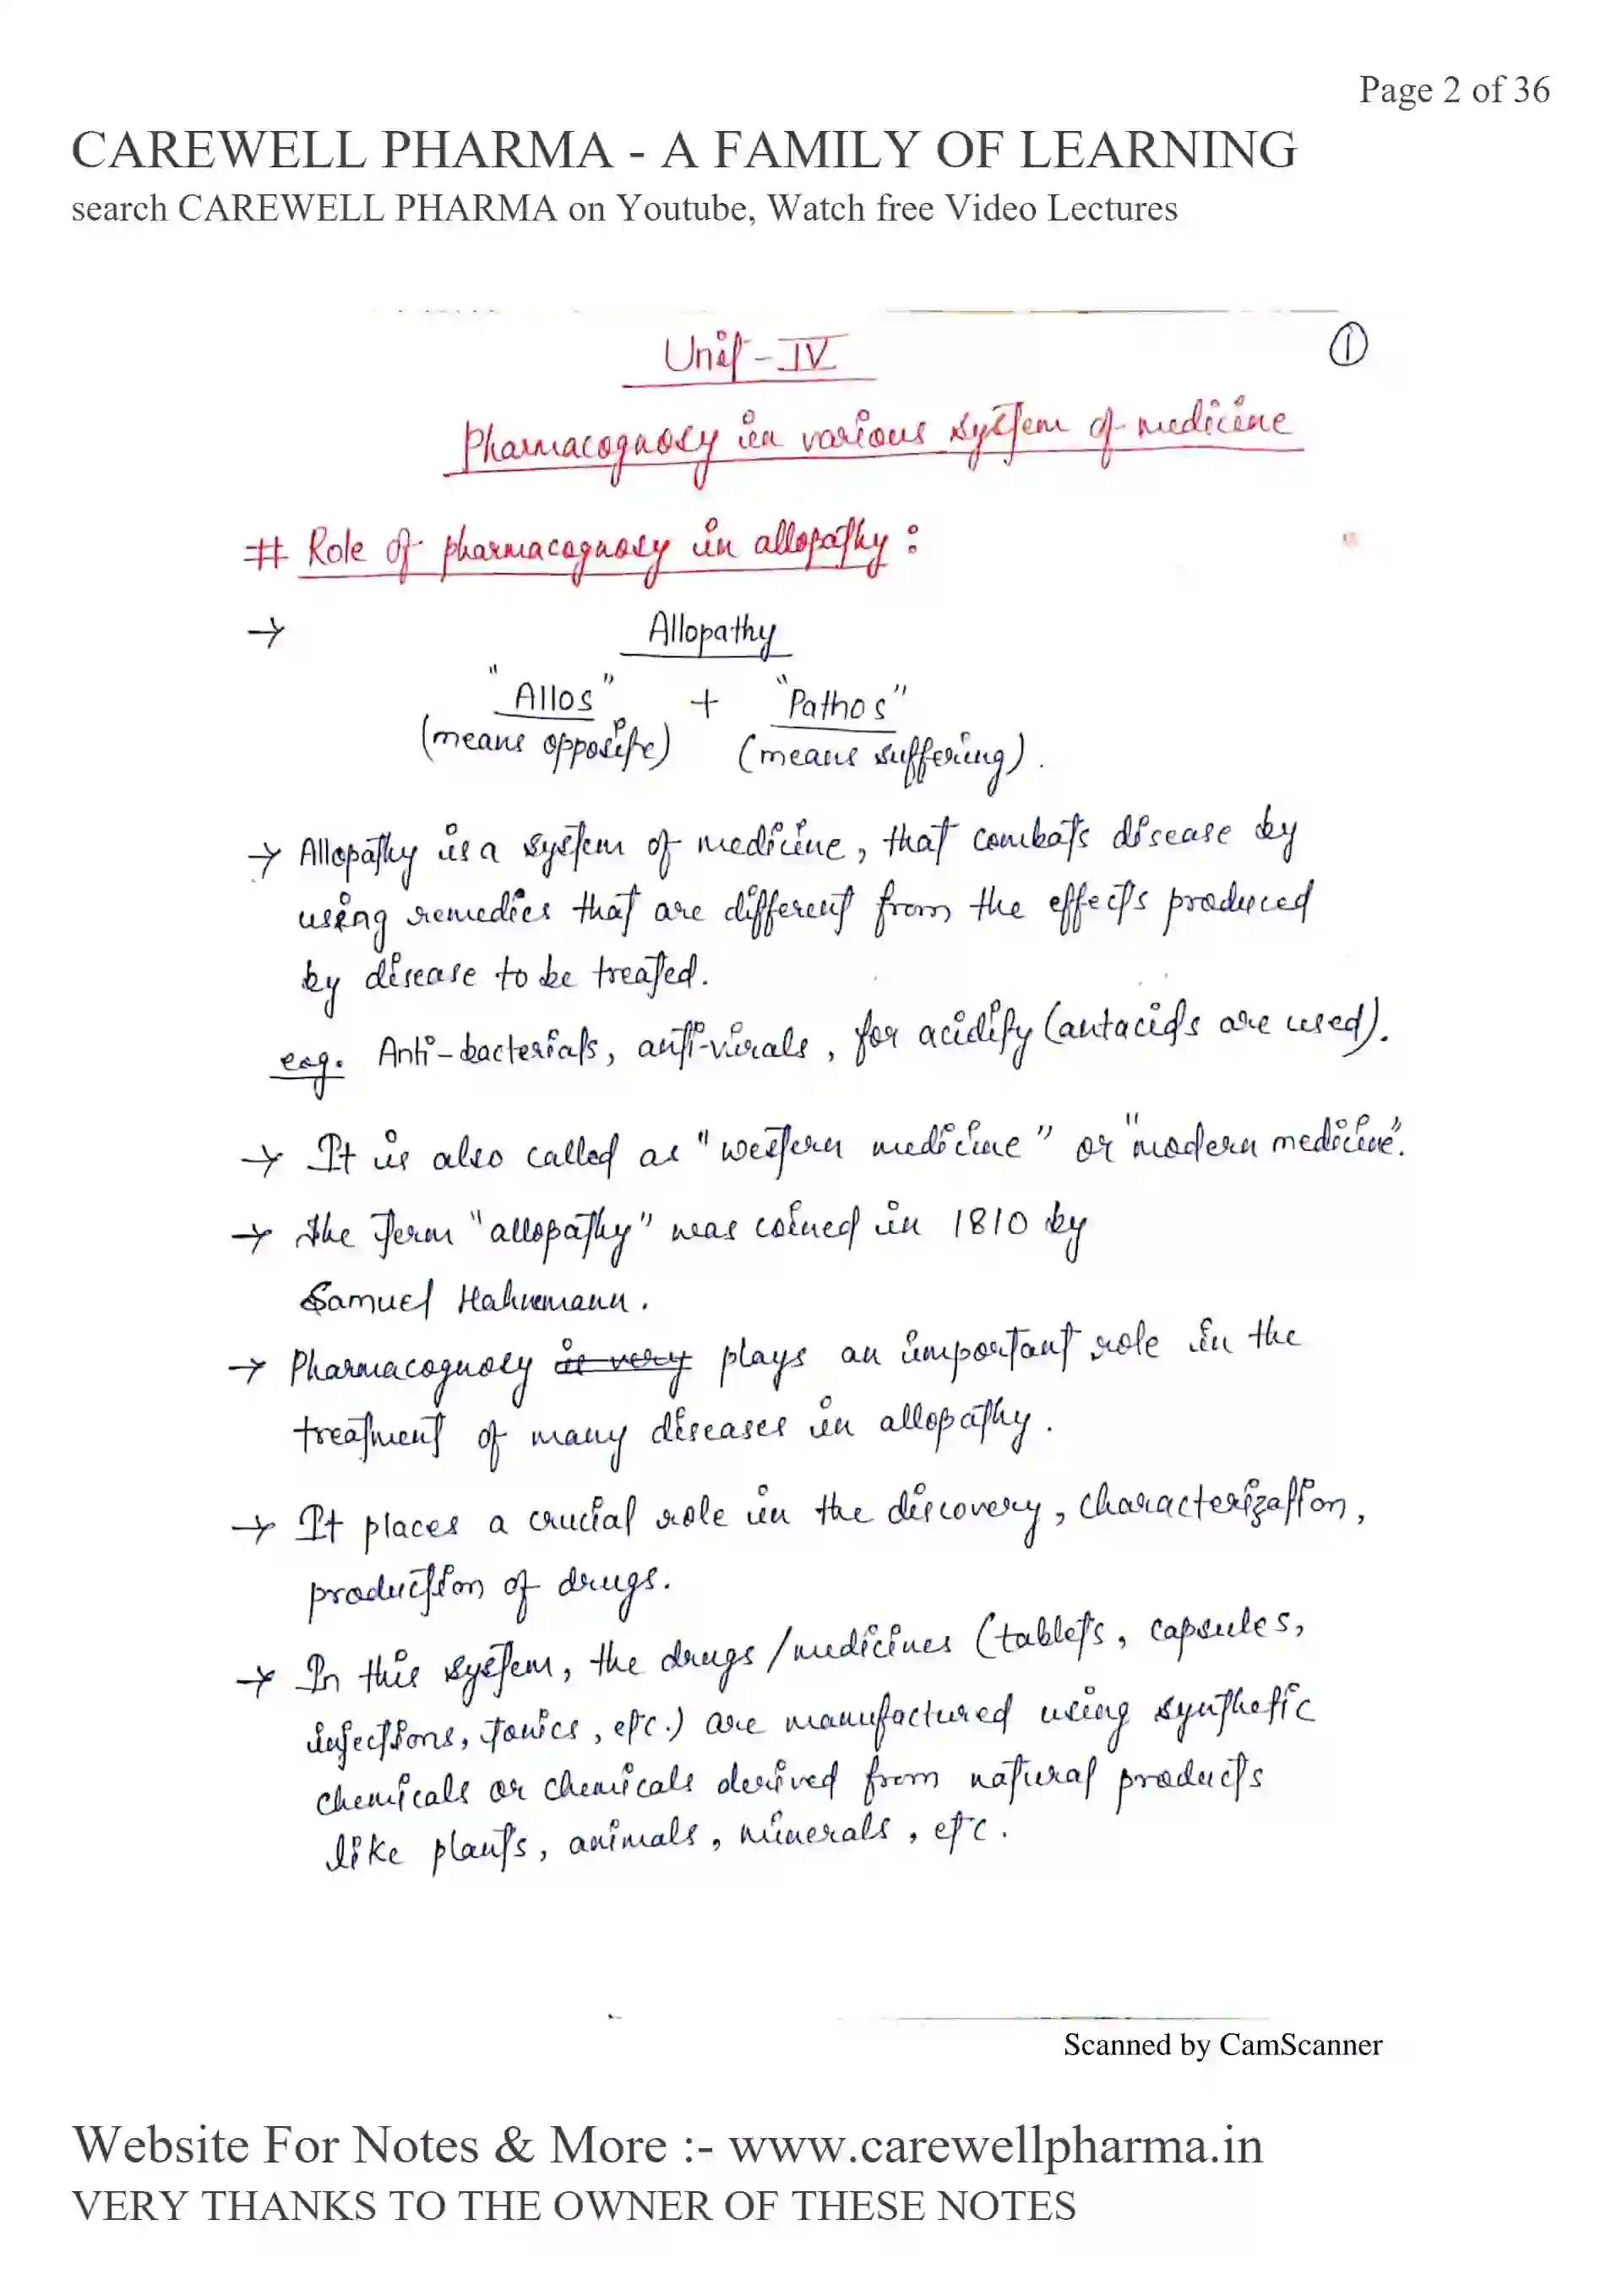 Page 2 of 36
CAREWELL PHARMA - A FAMILY OF LEARNING
search CAREWELL PHARMA on Youtube, Watch free Video Lectures
Unit - IV
①
Pharmacognosy in various system of medicine
# Role of pharmacognosy in allopathy :
→ Allopathy
"Allos" + "Pathos"
(means opposite) (means suffering).
→ Allopathy is a system of medicine, that combats disease by
using remedies that are different from the effects produced
by disease to be treated.
e.g. Anti-bacterials, anti-virals, for acidity (antacids are used).
→ It is also called as "western medicine" or "modern medicine".
→ The term "allopathy" was coined in 1810 by
Samuel Hahnemann.
→ Pharmacognosy is very plays an important role in the
treatment of many diseases in allopathy.
→ It places a crucial role in the discovery, characterization,
production of drugs.
→ In this system, the drugs/medicines (tablets, capsules,
injections, tonics, etc.) are manufactured using synthetic
chemicals or chemicals derived from natural products
like plants, animals, minerals, etc.
Scanned by CamScanner
Website For Notes & More :- www.carewellpharma.in
VERY THANKS TO THE OWNER OF THESE NOTES